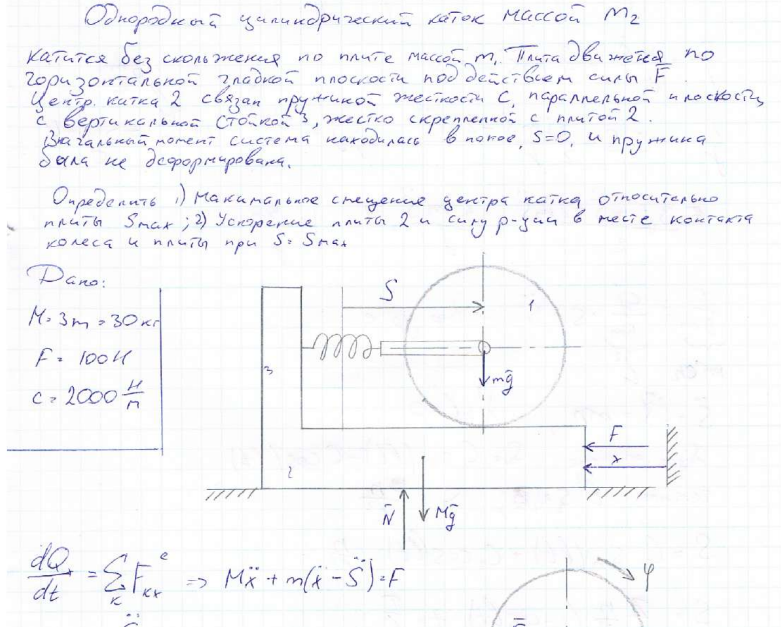 Однородный цилиндрический каток массой m₂
катится без скольжения по плите массой m₁. Плита движется по
горизонтальной гладкой плоскости под действием силы F.
Центр. катка 2 связан пружиной жесткости C, параллельной плоскости
с вертикальной стойкой 3, жестко скрепленной с плитой 2.
В начальный момент система находилась в покое, S=0, и пружина
была не деформирована.
Определить 1) Максимальное смещение центра катка относительно
плиты Smax; 2) Ускорение плиты 2 и силу р-ции в месте контакта
колеса и плиты при S=Smax
Дано:
M=3m=30кг
F=100Н
c=2000 Н/м
S
1
3
mg
F
x
2
N
Mg
dQₓ/dt = Σ Fₖₓᵉ => Mẍ + m(ẍ - S̈) = F
k
φ